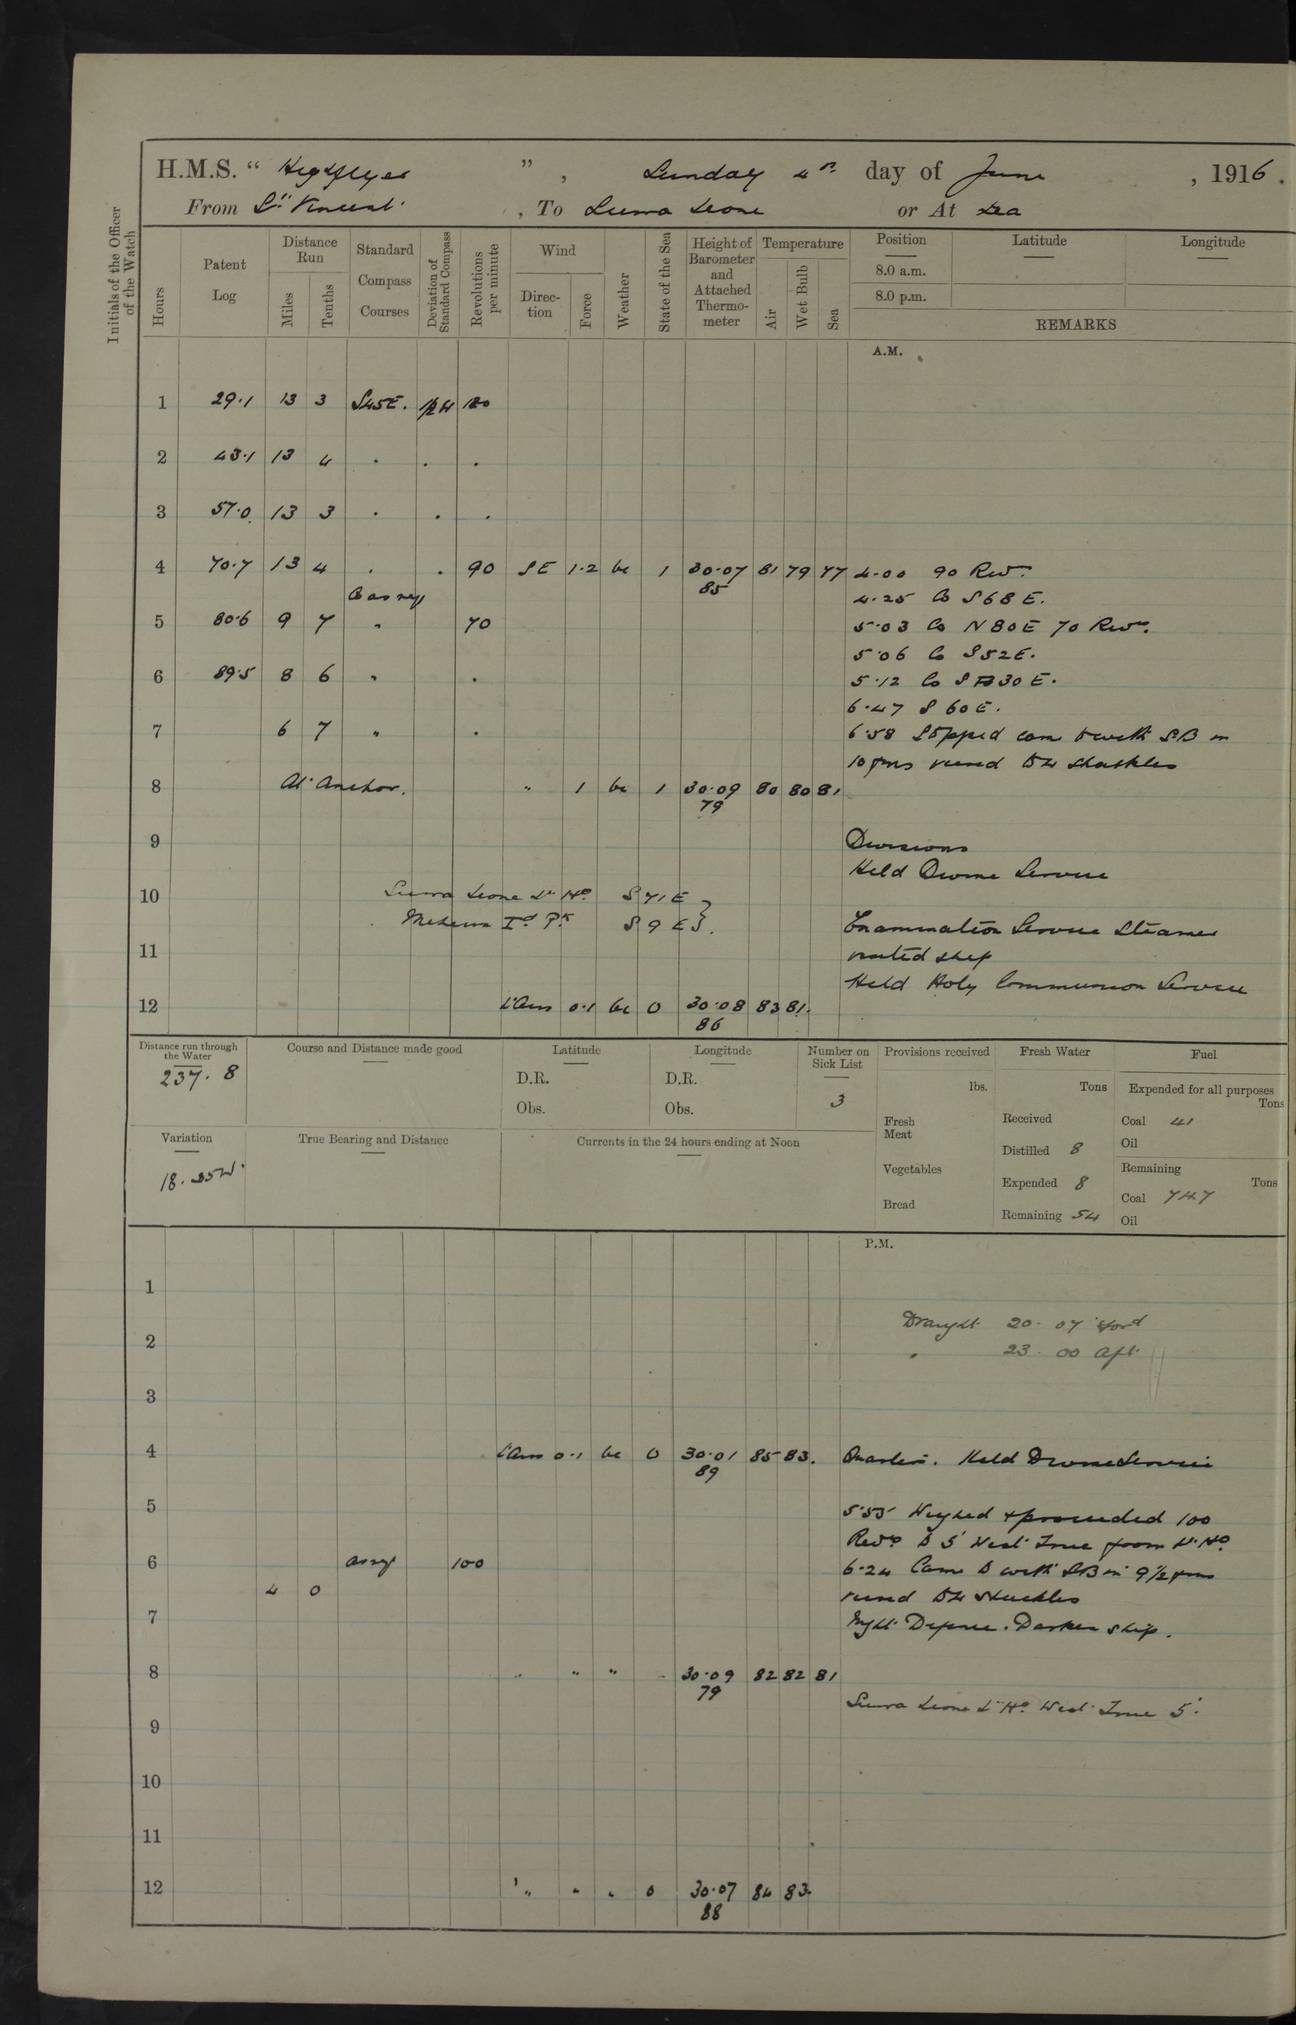 H.M.S. " Highflyer ", Sunday 4th day of June, 1916.
From St Vincent, To Sierra Leone or At Sea
Initials of the Officer of the Watch
Hours
Patent Log
Distance Run
Miles
Tenths
Standard Compass Courses
Deviation of Standard Compass
Revolutions per minute
Wind
Direction
Force
Weather
State of the Sea
Height of Barometer and Attached Thermometer
Temperature
Air
Wet Bulb
Sea
Position Latitude Longitude
8.0 a.m.
8.0 p.m.
REMARKS
A.M.
1 29.1 13 3 S45E.
2 43.1 13 4 . . .
3 57.0 13 3 . . .
4 70.7 13 4 . . 90 SE 1.2 bc 1 30.07 81 79 77 4.00 90 Revs.
85
Co as req 4.25 Co S68E.
5 80.6 9 7 " 70 5.03 Co N80E 70 Revs.
5.06 Co S52E.
6 89.5 8 6 " . 5.12 Co S 30E.
6.47 S 60E.
7 6 7 " . 6.58 Stopped came to with SB in
10 fms veered to 4 shackles
8 At Anchor. " 1 bc 1 30.09 80 80 81
79
9 Divisions
Held Divine Service
10 Sierra Leone Lt Ho S 71 E
Id Pt S 9 E } . Examination Service Steamer
11 visited ship
Held Holy Communion Service
12 Cam 0.1 bc 0 30.08 83 81.
86
Distance run through the Water
237.8
Course and Distance made good
Latitude
D.R.
Obs.
Longitude
D.R.
Obs.
Number on Sick List
3
Provisions received
lbs.
Fresh Meat
Vegetables
Bread
Fresh Water
Tons
Received
Distilled 8
Expended 8
Remaining 54
Fuel
Expended for all purposes
Tons
Coal 41
Oil
Remaining
Tons
Coal 747
Oil
Variation
18.35W.
True Bearing and Distance
Currents in the 24 hours ending at Noon
P.M.
1
Draught 20.07 Ford
2 " 23.00 Aft
3
4 Calm 0.1 bc 0 30.01 85 83. Quarters. Held Divine Service
89
5 5.55 Weighed & proceeded 100
Revs to 5' West True from Lt Ho
6 as req 100 6.24 Came to with SB in 9 1/2 fms
4 0 veered to 4 shackles
7 Night Defence. Darken ship.
8 " " " - 30.09 82 82 81
79
Sierra Leone Lt Ho West True 5'.
9
10
11
12 " " " 0 30.07 84 83.
88